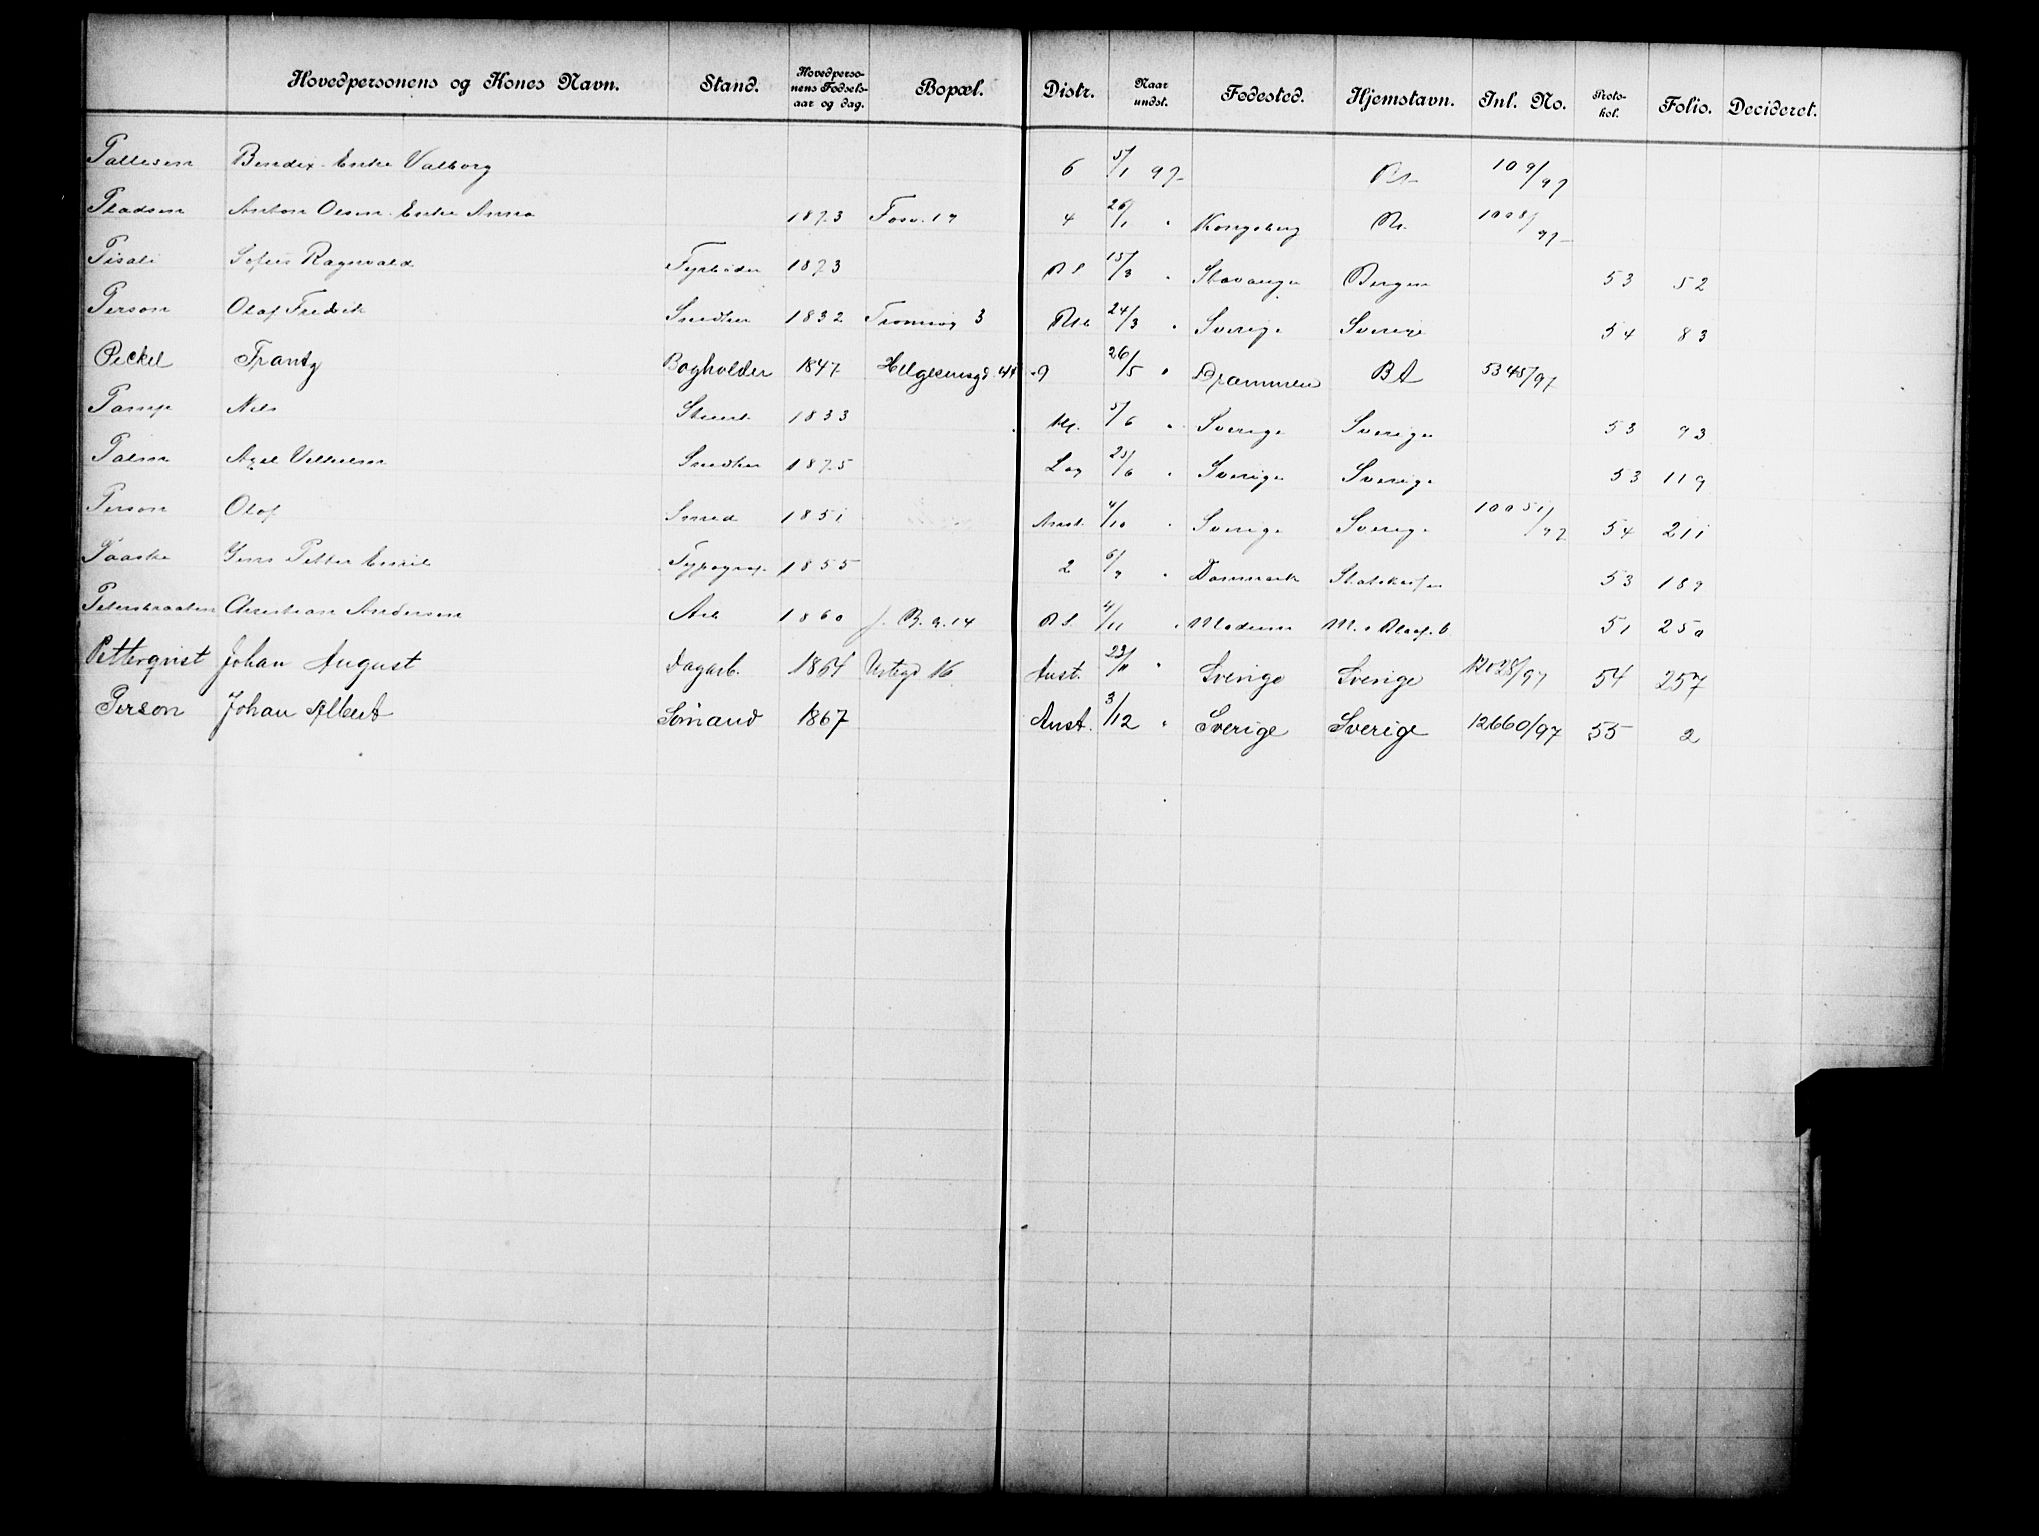 Hovedpersonens og Kones Navn. Stand. Hovedperso-nens Fødsels-aar og dag. Bopæl. Distr. Naar undst. Fødested. Hjemstavn. Inl. No. Proto-kol. Folio. Decideret.
Pallesen Bendix Enke Valborg 6 5/1 97 109/97
Anton Olsen Enke Anna 1873 4 26/1 " Kongsberg
Sofus Ragnvald Fyrbøder 1873 15/3 " Stavanger Bergen 53 52
Person Olaf Fredrik Snedker 1832 3 24/3 " Sverige Sverige 54 83
Peckel Frantz Bogholder 1847 Helgesensgd. 44 9 26/5 " Drammen BA 5348/97
Pamp Nils 1833 5/6 " Sverige Sverige 53 93
Palm Axel Vilhelm Snedker 1875 Lag 23/6 " Sverige Sverige 53 119
Person Olof Smed 1851 Anst. 4/10 " Sverige Sverige 10051/97 54 211
Paaske Jens Petter Emil Typograf 1855 2 6/9 " Danmark 53 189
Petersbraaten Christian Andersen Arb 1860 4/11 " Modum 51 250
Petterqvist Johan August Dagarb. 1864 16 Anst. 23/11 " Sverige Sverige 12128/97 54 257
Person Johan Albert Sømand 1867 Anst. 3/12 " Sverige Sverige 12660/97 55 2